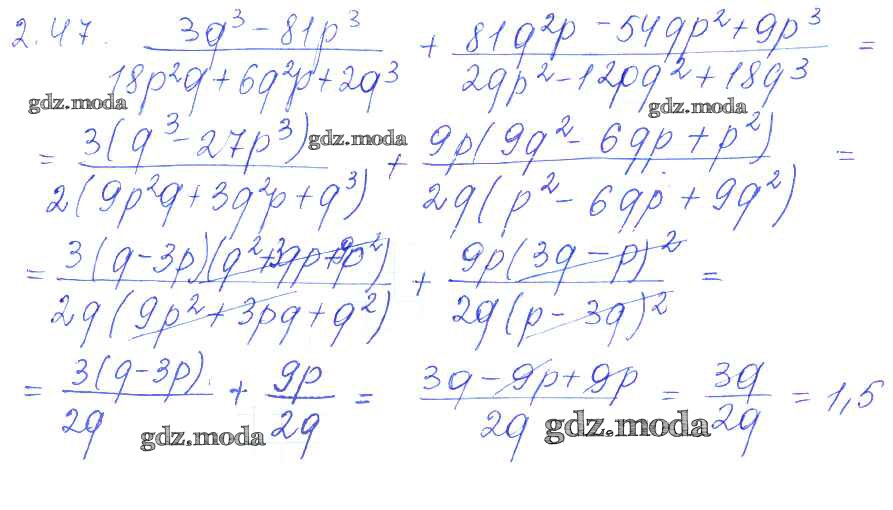 2.47. (3q³ - 81p³)/(18p²q + 6q²p + 2q³) + (81q²p - 54qp² + 9p³)/(2qp² - 12pq² + 18q³) =
gdz.moda gdz.moda
= 3(q³ - 27p³)/2(9p²q + 3q²p + q³) + 9p(9q² - 6qp + p²)/2q(p² - 6qp + 9q²) =
gdz.moda
= 3(q - 3p)(q² + 3qp + 9p²)/2q(9p² + 3pq + q²) + 9p(3q - p)²/2q(p - 3q)² =
= 3(q - 3p)/2q + 9p/2q = (3q - 9p + 9p)/2q = 3q/2q = 1,5
gdz.moda gdz.moda